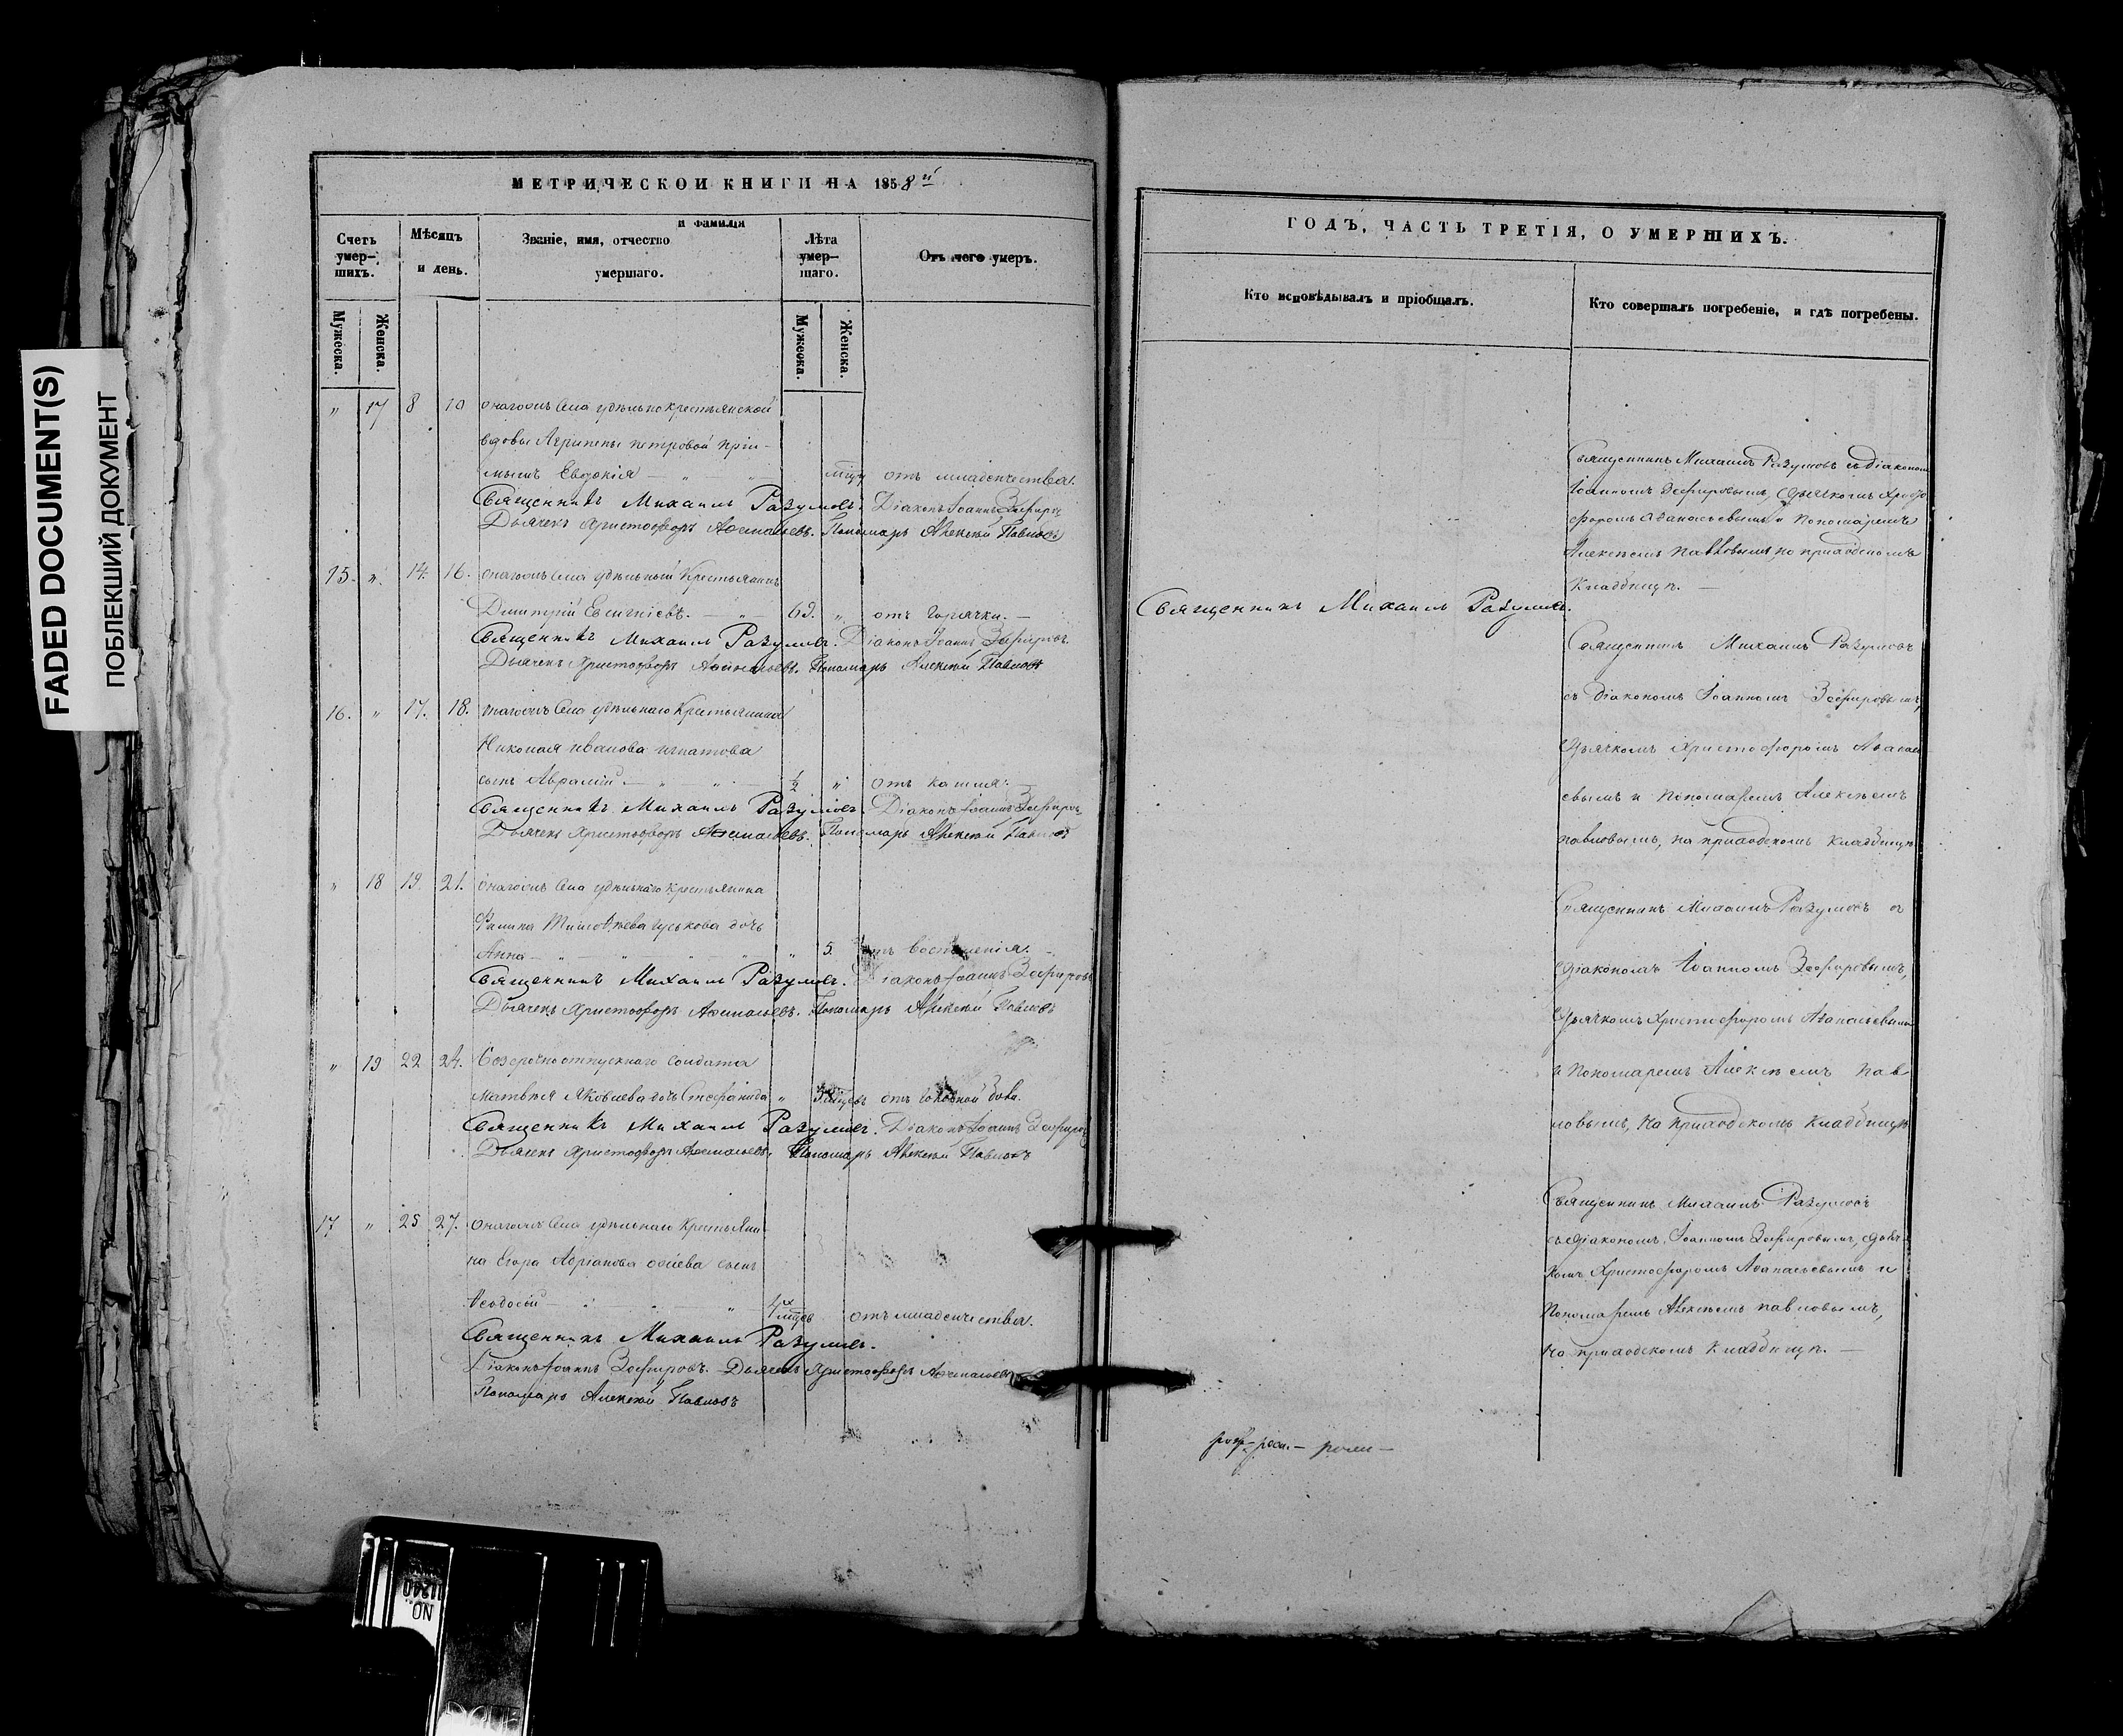 FADED DOCUMENT(S)
ПОБЛЕКШИЙ ДОКУМЕНТ
МЕТРИЧЕСКОЙ КНИГИ НА 1858й
Счетъ умершихъ.
Мужеска.
Женска.
Мѣсяцъ и день.
Званіе, имя, отчество и фамилія умершаго.
Лѣта умершаго.
Мужеска.
Женска.
Отъ чего умеръ.
" 17 8 10 онагожъ Села удѣльно крестьянской
вдовы Агрипены петровой пріи-
мышъ Евдокія — " — " отъ младенчества.
Священникъ Михаилъ Разумовъ. Діаконъ Іоаннъ Зефировъ
Дьячекъ Христофоръ Афанасьевъ. Пономарь Алексѣй Павловъ
15. ". 14. 16. онагожъ Села удѣльный Крестьянинъ
Димитрій Евсигніевъ. — " — 60. " отъ горячки. —
Священникъ Михаилъ Разумовъ. Діаконъ Іоаннъ Зефировъ.
Дьячекъ Христофоръ Афанасьевъ. Пономарь Алексѣй Павловъ
16. " 17. 18. онагожъ Села удѣльнаго Крестьянина
Николая иванова игнатова
сынъ Аврамій. — " — " — 1/2 " отъ кашля. —
Священникъ Михаилъ Разумовъ. Діаконъ Іоаннъ Зефировъ
Дьячекъ Христофоръ Афанасьевъ. Пономарь Алексѣй Павловъ
" 18 19. 21. онагожъ Села удѣльнаго крестьянина
Филипа Тимоѳѣева гуськова дочь
Анна — " — " — " — " 5. отъ воспаленія. —
Священникъ Михаилъ Разумовъ. Діаконъ Іоаннъ Зефировъ
Дьячекъ Христофоръ Афанасьевъ. Пономарь Алексѣй Павловъ
" 19 22 24. безсрочноотпускнаго солдата
Матвѣя Яковлева дочь Стефанида " мцевъ отъ головной боли.
Священникъ Михаилъ Разумовъ. Діаконъ Іоаннъ Зефировъ
Дьячекъ Христофоръ Афанасьевъ. Пономарь Алексѣй Павловъ
17 " 25 27. онагожъ Села удѣльнаго Крестьяни-
на Егора Адріанова сынъ
Ѳеодосій — " — " — " 4х мцевъ отъ младенчества.
Священникъ Михаилъ Разумовъ.
Діаконъ Іоаннъ Зефировъ. Дьячекъ Христофоръ Афанасьевъ
Пономарь Алексѣй Павловъ
ГОДЪ, ЧАСТЬ ТРЕТІЯ, О УМЕРШИХЪ.
Кто исповѣдывалъ и пріобщалъ.
Кто совершалъ погребеніе, и гдѣ погребены.
Священникъ Михаилъ Разумовъ.
Священникъ Михаилъ Разумовъ съ діаконом
Іоанномъ Зефировымъ, дьячкомъ Христо
форомъ Аѳанасьевымъ и пономаремъ
Алексѣемъ павловымъ, на приходскомъ
Кладбищѣ. —
Священникъ Михаилъ Разумовъ
съ діакономъ Іоанномъ Зефировымъ,
дьячкомъ Христофоромъ Аѳанась
евымъ и пономаремъ Алексѣемъ
павловымъ, на приходскомъ кладбищѣ
Священникъ Михаилъ Разумовъ съ
діакономъ Іоанномъ Зефировымъ,
дьячкомъ Христофоромъ Аѳанасьевымъ
и пономаремъ Алексѣемъ пав
ловымъ, на приходскомъ кладбищѣ
Священникъ Михаилъ Разумовъ
съ діакономъ Іоанномъ Зефировымъ, дьяч-
комъ Христофоромъ Аѳанасьевымъ и
пономаремъ Алексѣемъ павловымъ,
на приходскомъ кладбищѣ. —
NO.